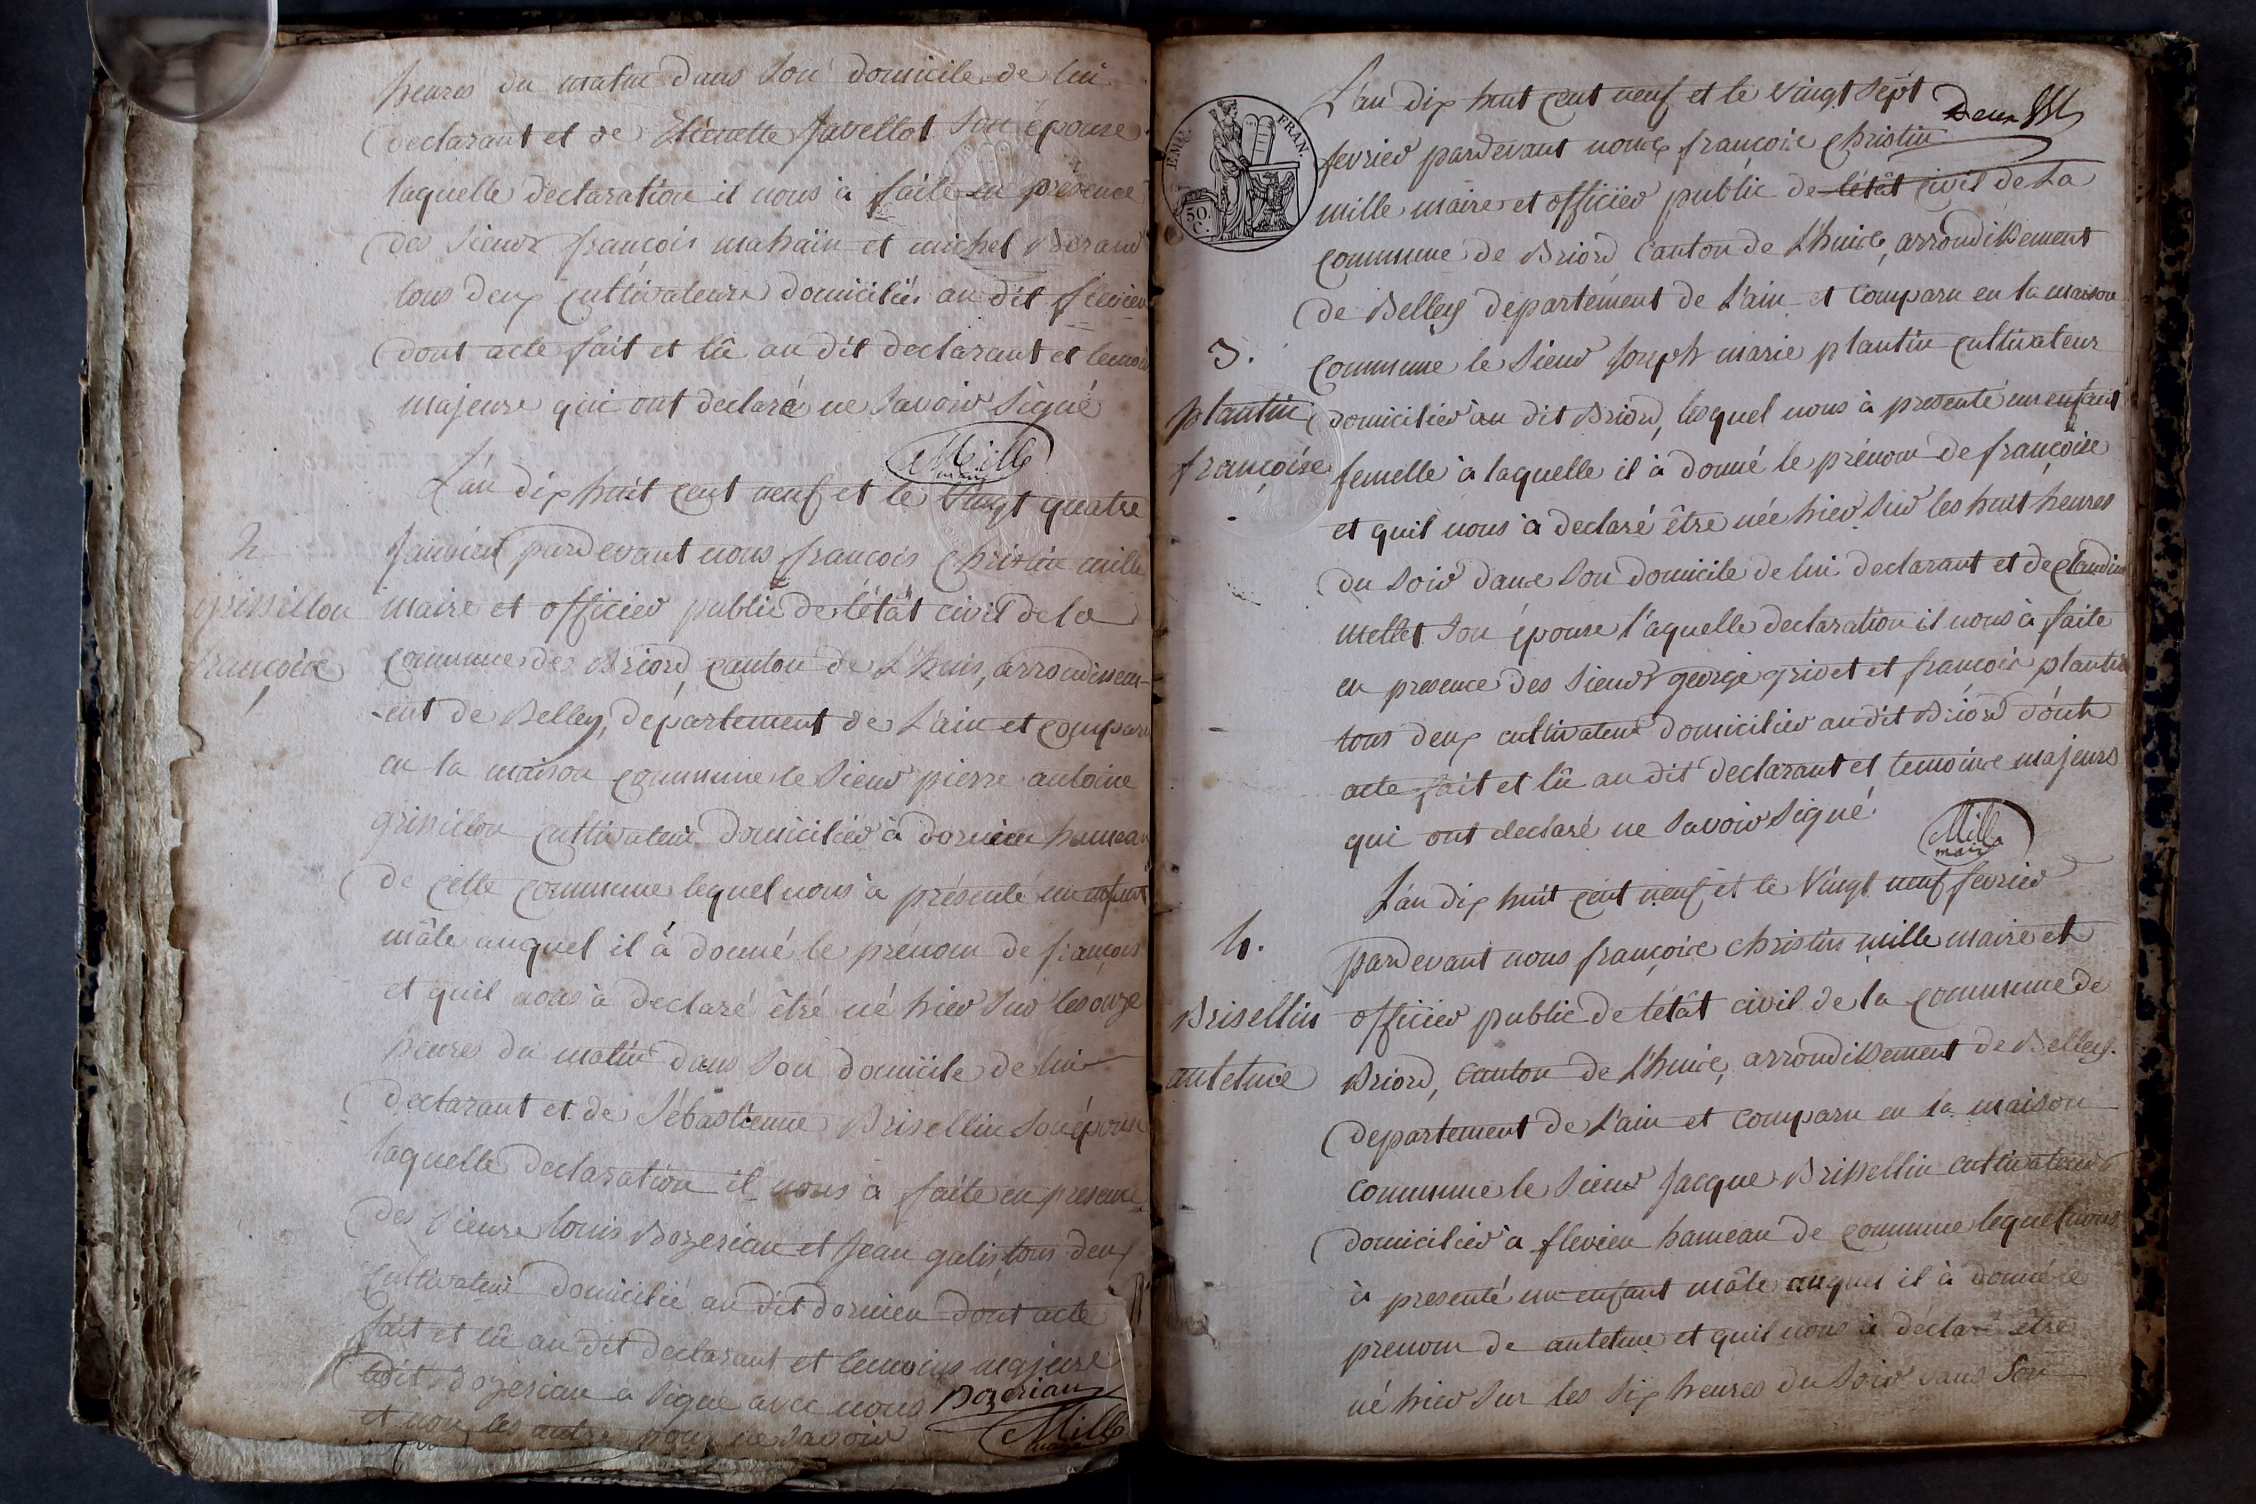 heures du matin dans son domicile de lui
declarant et de Etiennette Javellot son épouse
laquelle declaration il nous à faite en presence
de sieurs françois mahaïn et michel Beraud
tous deux cultivateurs domiciliés au dit flevieu
dont acte fait et lû au dit declarant et temoins
majeurs qui ont declaré ne savoir signé
Mille
maire
L'an dix huit cent neuf et le vingt quatre
2
janvier pardevant nous françois Christin mille
grissillon
maire et officier public de l'étât civil de la
françoise
commune de Briord canton de L'huis, arrondissem-
-ent de Belley, departement de L'ain et comparu
en la maison commune le sieur pierre antoine
grissillon cultivateur domicilier à dornieu hameau
de cette commune lequel nous à présenté un enfant
mâle auquel il à donné le prénom de françois
et quil nous à declaré être né hier sur les onze
heures du matin dans son domicile de lui
declarant et de Sébastienne Brisellin son épouse
laquelle declaration il nous à faite en presence
des sieurs louis Bozerian et jean galis tous deux
cultivateur domicilié au dit dornieu dont acte
fait et lû au dit declarant et temoins majeurs
ledit Bozerian a signé avec nous Bozerian
et non les autre pour ne savoir
Mille
maire
EMP. FRAN.
50. C.
L'an dix huit cent neuf et le vingt sept
Deux
fevrier pardevant nous françois christin
mille maire et officier public de l'étât civil de La
commune de Briord canton de L'huis, arrondissement
de Belley departement de L'ain et comparu en la maison
3.
commune le sieur joseph marie plantin cultivateur
plantin
domicilier au dit Briord, lesquel nous à presenté un enfant
françoise
femelle à laquelle il à donné le prénom de françoise
et quil nous à declaré être née hier sur les huit heures
du soir dans son domicile de lui declarant et de claudine
mellet son épouse l'aquelle declaration il nous à faite
en presence des sieurs george grivet et françois plantin
tous deux cultivateur domicilier au dit Briord dont
acte fait et lû au dit declarant et temoins majeurs
qui ont declaré ne savoir signé.
Mille
maire
L'an dix huit cent neuf et le vingt neuf fevrier
4.
pardevant nous françois christin mille maire et
Brisellin
officier public de l'étât civil de la commune de
antelme
Briord, canton de L'huis, arrondissement de Belley.
departement de L'ain et comparu en la maison
commune le sieur Jacque Brissellin cultivateur
domicilier à flevieu hameau de commune lequel nous
à presenté un enfant mâle auquel il à donné le
prenom de antelme et quil nous à déclaré être
né hier sur les six heures du soir dans son